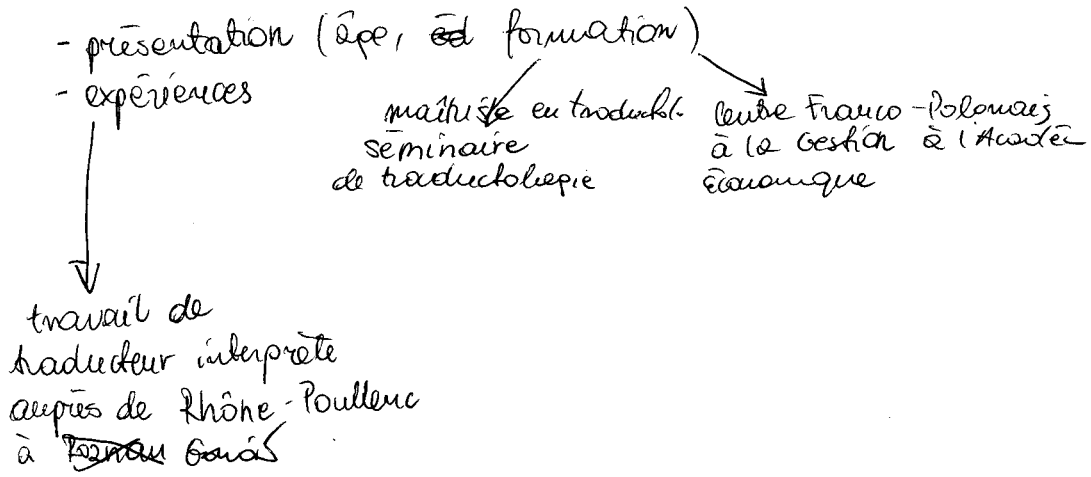 - présentation (âge, formation)
- expériences
maîtrise en traductol.
séminaire
de traductologie
Centre Franco-Polonais
à la Gestion à l'Acadé
Économique
travail de
traducteur interprète
auprès de Rhône-Poullenc
à